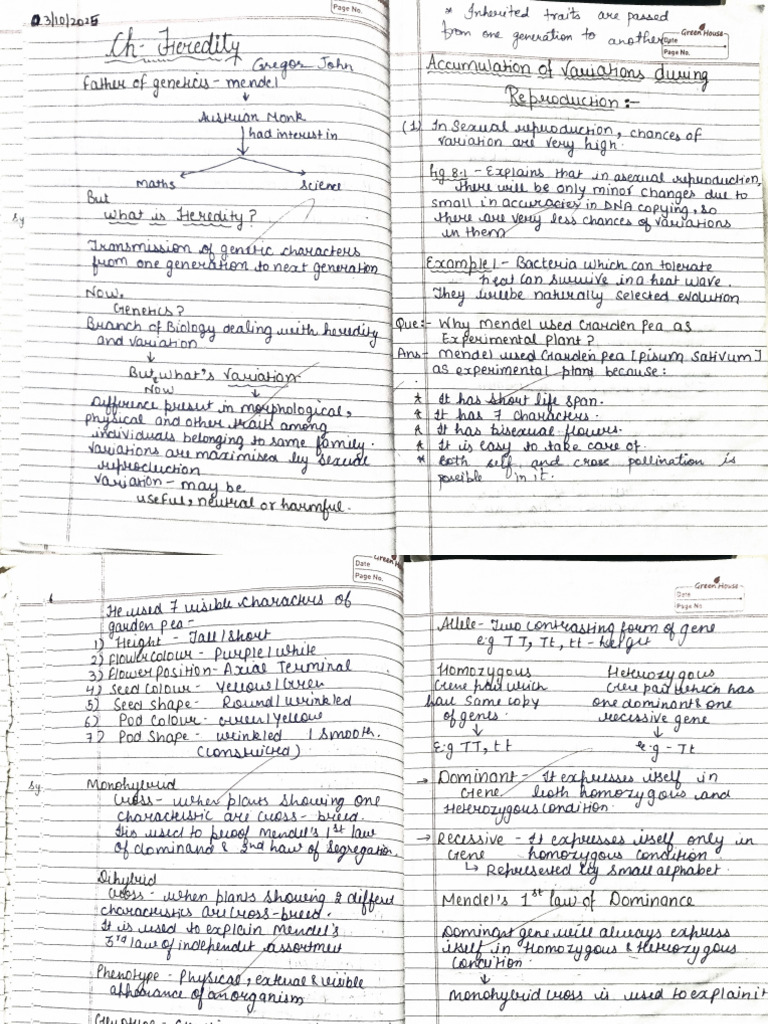 03/10/2025
Page No.
Ch- Heredity
Gregor John
Father of genetics - mendel
Austrian Monk
had interest in
Maths Science
But
What is Heredity?
Transmission of genetic characters
from one generation to next generation
Now,
Genetics?
Branch of Biology dealing with heredity
and variation
But, what's variation
Now
Difference present in morphological,
physical and other traits among
individuals belonging to same family.
variations are maximised by sexual
reproduction
variation - may be
useful, neutral or harmful.
* Inherited traits are passed
from one generation to another
Green House
Date
Page No.
Accumulation of Variations during
Reproduction:-
(1) In Sexual reproduction, chances of
variation are very high.
fig 8.1 - Explains that in asexual reproduction,
there will be only minor changes due to
small in accuracies in DNA copying, so
there are very less chances of variations
in them
Example 1 - Bacteria which can tolerate
heat can survive in a heat wave.
They will be naturally selected evolution
Que:- Why Mendel used Garden Pea as
Experimental Plant?
Ans- Mendel used Garden Pea [Pisum Sativum]
as experimental plant because:
* It has short life span.
* It has 7 characters.
* It has bisexual flowers.
* It is easy to take care of.
* Both self and cross pollination is
possible in it.
Green House
Date
Page No.
He used 7 visible characters of
garden pea-
1) Height - Tall/Short
2) Flower colour - Purple/White
3) Flower Position - Axial Terminal
4) Seed Colour - Yellow/Green
5) Seed Shape - Round/Wrinkled
6) Pod Colour - Green/Yellow
7) Pod Shape - wrinkled / Smooth.
(Constricted)
Monohybrid
Cross - When plants showing one
characteristic are cross-breed.
It is used to proof Mendel's 1st law
of dominand & 2nd law of Segregation.
Dihybrid
Cross - when plants showing 2 differet
characteristics are cross-breed.
It is used to explain Mendel's
3rd law of independet assortmet
Phenotype - Physical, exteual & visible
appearance of an organism
Green House
Date
Page No.
Allele - Two contrasting form of gene
e.g TT, Tt, tt - height
Homozygous Heterozygous
Gene pair which Gene pair which has
have same copy one dominant & one
of genes. recessive gene
E.g TT, tt e.g - Tt
→ Dominant - It expresses itself in
Gene both homozygous and
Heterozygous condition.
→ Recessive - It expresses itself only in
Gene homozygous condition
↳ Represented by small alphabet.
Mendel's 1st law of Dominance
Dominant gene will always express
itself in Homozygous & Heterozygous
Condition.
Monohybrid cross is used to explain it